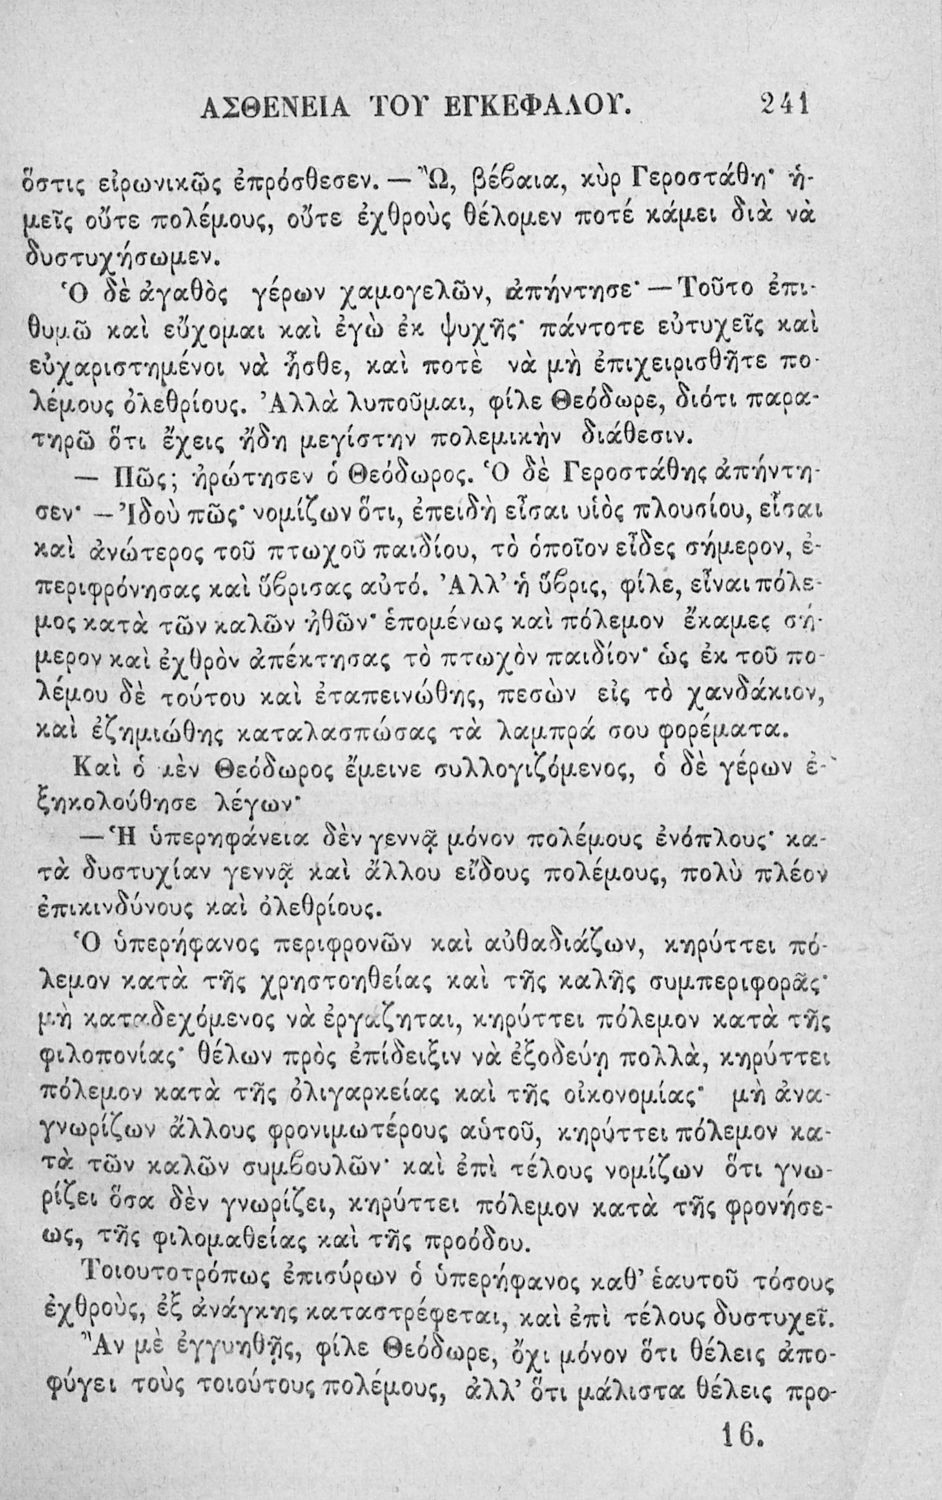 ΑΣΘΕΝΕΙΑ ΤΟΥ ΕΓΚΕΦΑΛΟΥ. 241
ὅστις εἰρωνικῶς ἐπρόσθεσεν. — Ὢ, βέβαια, κὺρ Γεροστάθη· ἡ-
μεῖς οὔτε πολέμους, οὔτε ἐχθροὺς θέλομεν ποτέ κάμει διὰ νὰ
δυστυχήσωμεν.
Ὁ δὲ ἀγαθὸς γέρων χαμογελῶν, ἀπήντησε· — Τοῦτο ἐπι-
θυμῶ καὶ εὔχομαι καὶ ἐγὼ ἐκ ψυχῆς· πάντοτε εὐτυχεῖς καὶ
εὐχαριστημένοι νὰ ἦσθε, καὶ ποτὲ νὰ μὴ ἐπιχειρισθῆτε πο-
λέμους ὀλεθρίους. Ἀλλὰ λυποῦμαι, φίλε Θεόδωρε, διότι παρα-
τηρῶ ὅτι ἔχεις ἤδη μεγίστην πολεμικὴν διάθεσιν.
— Πῶς; ἠρώτησεν ὁ Θεόδωρος. Ὁ δὲ Γεροστάθης ἀπήντη-
σεν· — Ἰδοὺ πῶς· νομίζων ὅτι, ἐπειδὴ εἶσαι υἱὸς πλουσίου, εἶσαι
καὶ ἀνώτερος τοῦ πτωχοῦ παιδίου, τὸ ὁποῖον εἶδες σήμερον, ἐ-
περιφρόνησας καὶ ὕβρισας αὐτό. Ἀλλ' ἡ ὕβρις, φίλε, εἶναι πόλε-
μος κατὰ τῶν καλῶν ἠθῶν· ἑπομένως καὶ πόλεμον ἔκαμες σή-
μερον καὶ ἐχθρὸν ἀπέκτησας τὸ πτωχὸν παιδίον· ὡς ἐκ τοῦ πο-
λέμου δὲ τούτου καὶ ἐταπεινώθης, πεσὼν εἰς τὸ χανδάκιον,
καὶ ἐζημιώθης καταλασπώσας τὰ λαμπρά σου φορέματα.
Καὶ ὁ μὲν Θεόδωρος ἔμεινε συλλογιζόμενος, ὁ δὲ γέρων ἐ-
ξηκολούθησε λέγων·
— Ἡ ὑπερηφάνεια δὲν γεννᾷ μόνον πολέμους ἐνόπλους· κα-
τὰ δυστυχίαν γεννᾷ καὶ ἄλλου εἴδους πολέμους, πολὺ πλέον
ἐπικινδύνους καὶ ὀλεθρίους.
Ὁ ὑπερήφανος περιφρονῶν καὶ αὐθαδιάζων, κηρύττει πό-
λεμον κατὰ τῆς χρηστοηθείας καὶ τῆς καλῆς συμπεριφορᾶς·
μὴ καταδεχόμενος νὰ ἐργάζηται, κηρύττει πόλεμον κατὰ τῆς
φιλοπονίας· θέλων πρὸς ἐπίδειξιν νὰ ἐξοδεύῃ πολλὰ, κηρύττει
πόλεμον κατὰ τῆς ὀλιγαρκείας καὶ τῆς οἰκονομίας· μὴ ἀνα-
γνωρίζων ἄλλους φρονιμωτέρους αὑτοῦ, κηρύττει πόλεμον κα-
τὰ τῶν καλῶν συμβουλῶν· καὶ ἐπὶ τέλους νομίζων ὅτι γνω-
ρίζει ὅσα δὲν γνωρίζει, κηρύττει πόλεμον κατὰ τῆς φρονήσε-
ως, τῆς φιλομαθείας καὶ τῆς προόδου.
Τοιουτοτρόπως ἐπισύρων ὁ ὑπερήφανος καθ' ἑαυτοῦ τόσους
ἐχθροὺς, ἐξ ἀνάγκης καταστρέφεται, καὶ ἐπὶ τέλους δυστυχεῖ.
Ἂν μὲ ἐγγυηθῇς, φίλε Θεόδωρε, ὄχι μόνον ὅτι θέλεις ἀπο-
φύγει τοὺς τοιούτους πολέμους, ἀλλ' ὅτι μάλιστα θέλεις προ-
16.